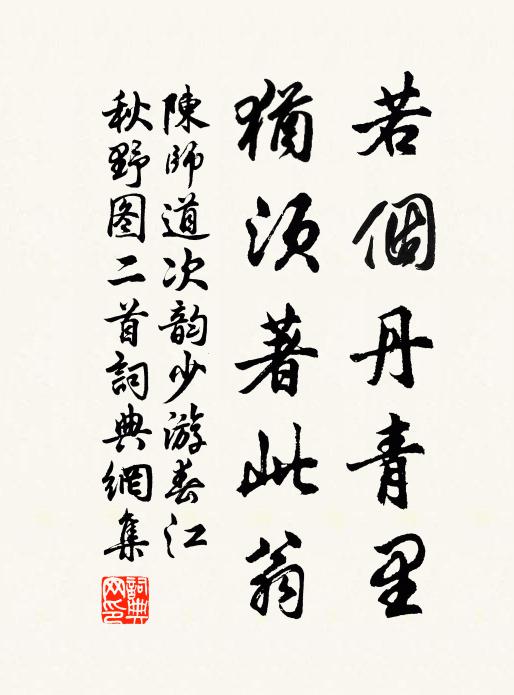 若個丹青里
猶須著此翁
陳師道次韵少游春江
秋野图二首詞典網集
詞典網印